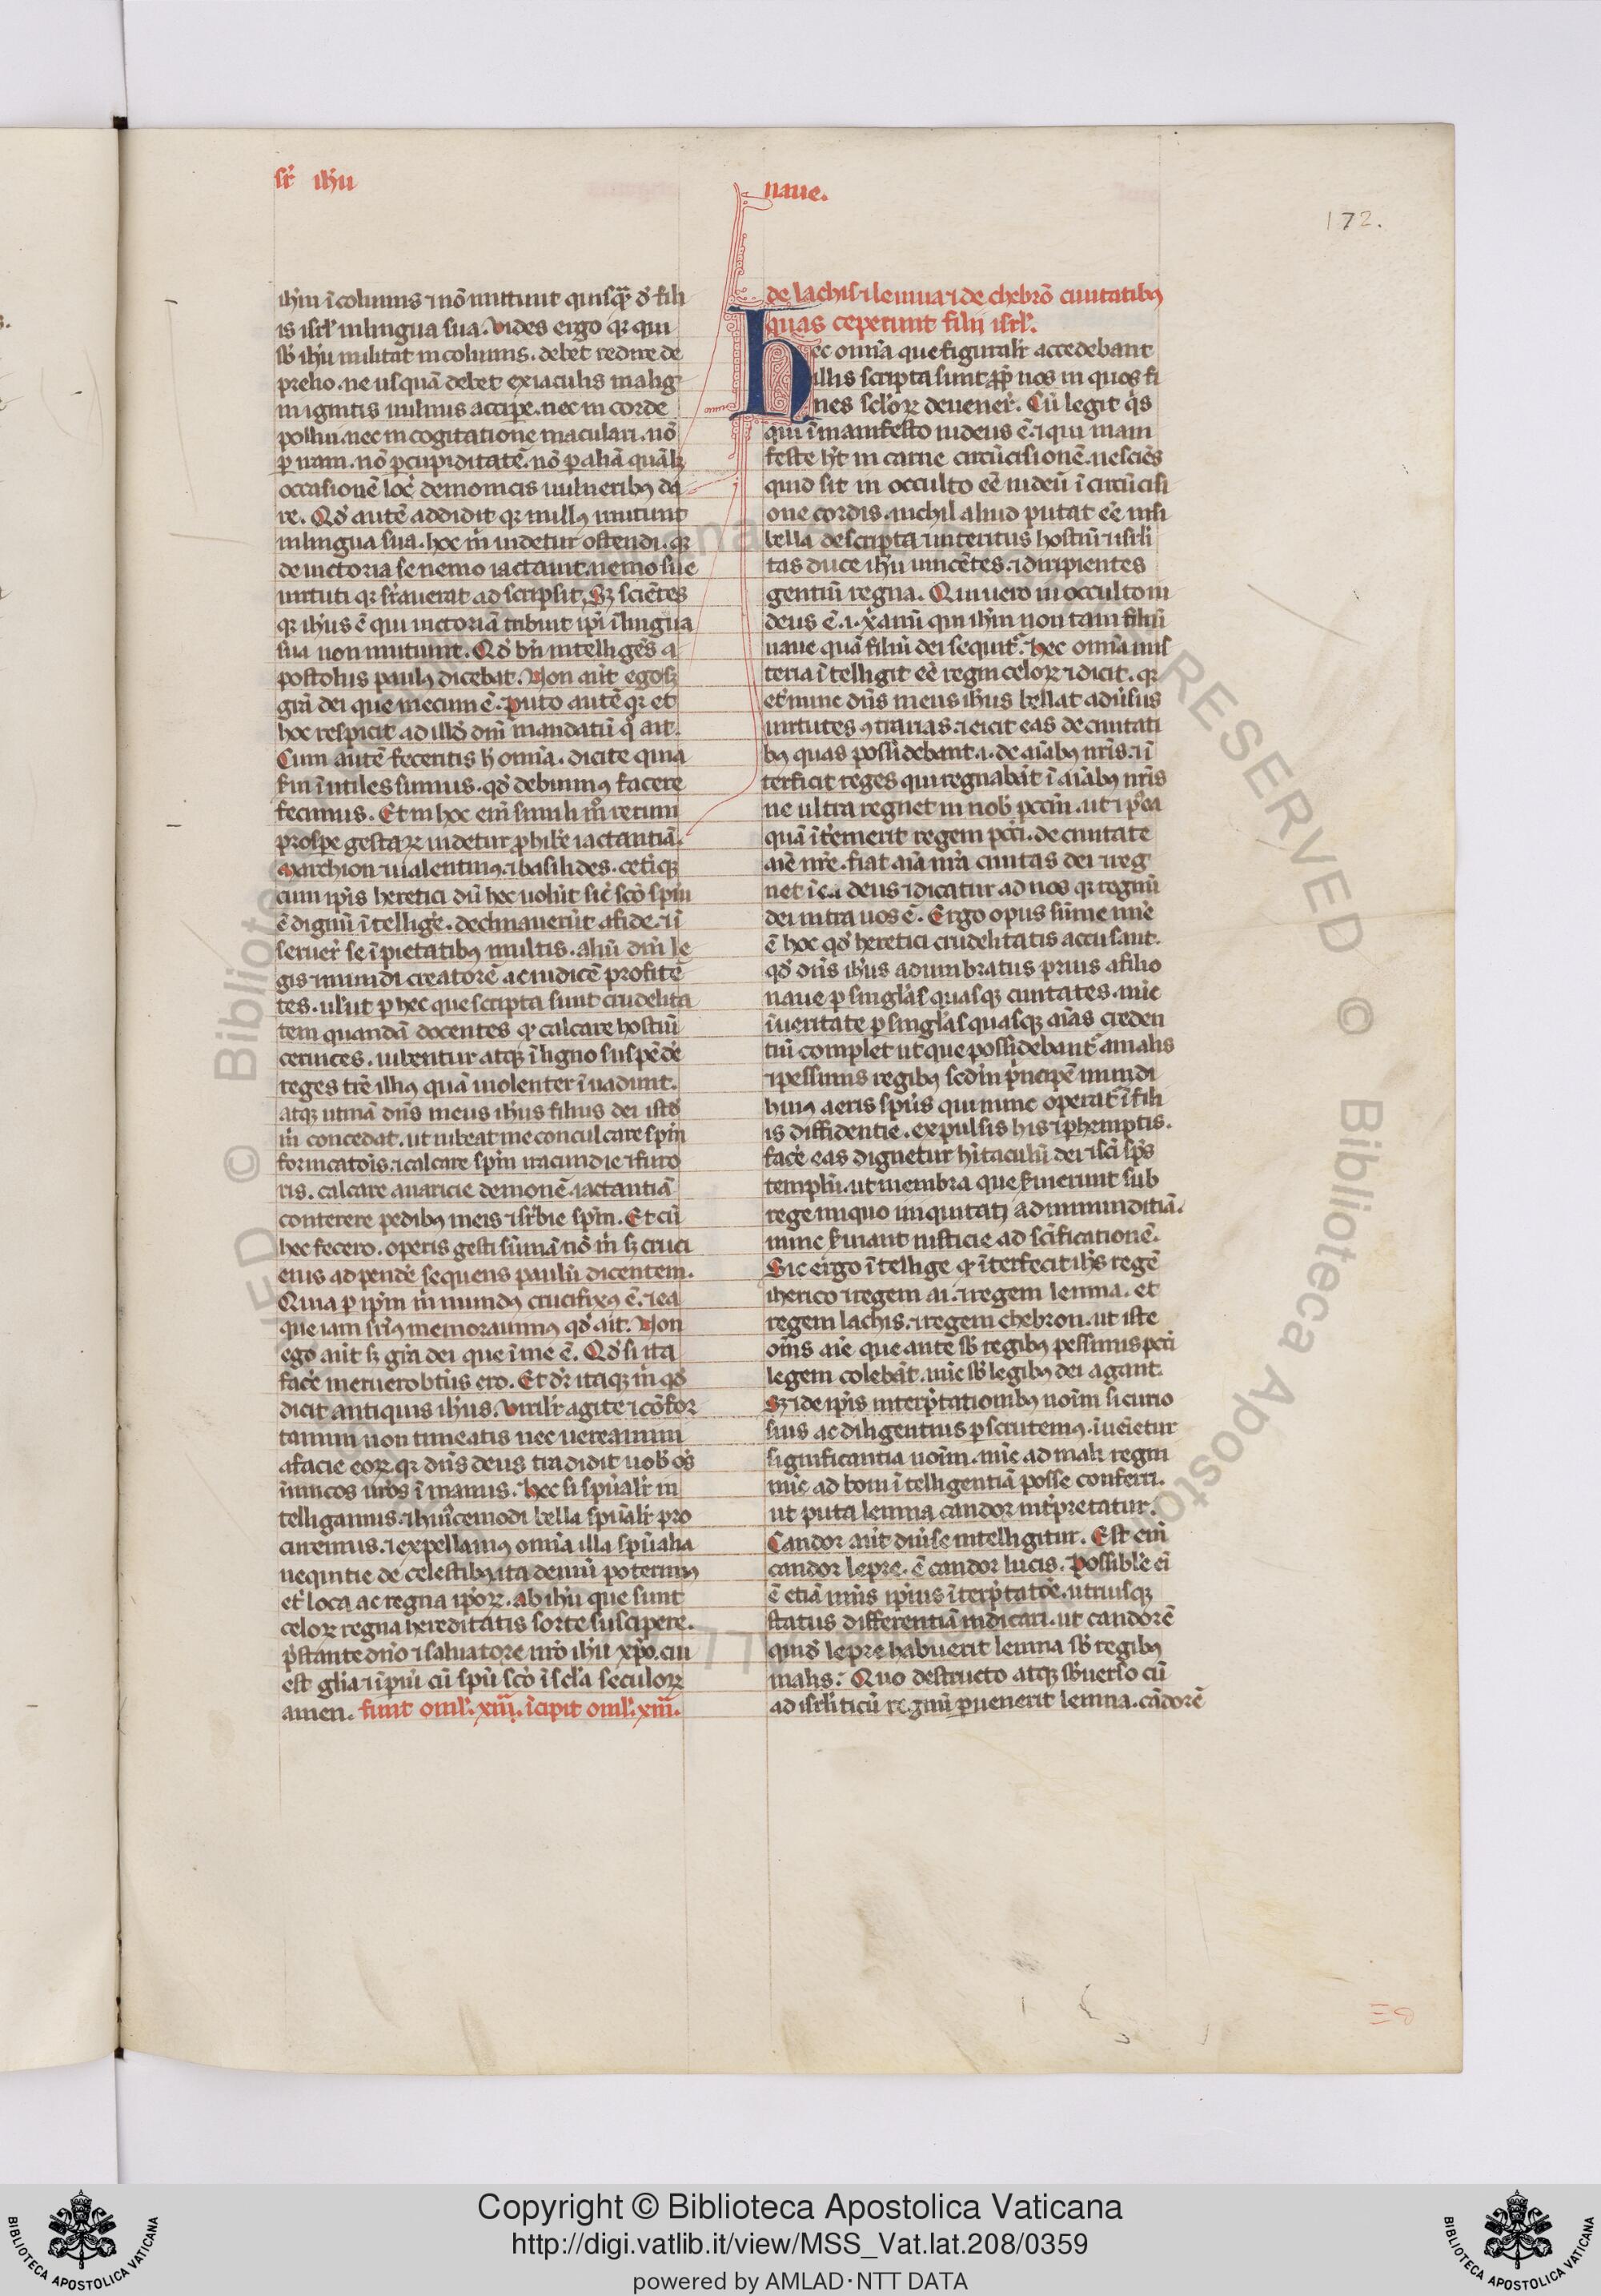 sr̄ ihū
naue.
172.
ihm̄ ī columis ⁊ nō mutiunt quisq̄ꝫ d̓ fili
is isrl̓ in lingua sua. Vides ergo qꝛ qui
sb̓ ihū militat in columis. debet redire de
prelio. ne usquā debet ex iaculis malig
ni ignitis uulnus accipe. nec in corde
pollui. nec in cogitatione maculari. nō
ꝑ iram. nō ꝑ cupiditatē. nō ꝑ aliā quālꝫ
occasionē locū demonicis uulneribꝰ da
re. Qd̓ autē addidit qꝛ nullꝰ mutiuit
in lingua sua. hoc m̄ uidetur ostendi. qꝛ
de uictoria se nemo iactauit. nemo sue
uirtuti qꝛ sr̄auerat ad scripsit. Sꝫ sciētes
qꝛ ihūs ē qui uictoriā tribuit ip̄i ī lingua
sua non mutiunt. Qd̓ bn̄ intelligēs a
postolus paulꝰ dicebat. Non aūt ego sꝫ
grā dei que mecum ē. Puto autē qꝛ et
hoc respicit ad illd̓ dn̄i mandatū q̓ ait.
Cum autē feceritis h̓ omīa. dicite quia
s̓ui īutiles sumus. qd̓ debuimꝰ facere
fecimus. Et in hoc em̄ simili m̊ rerum
prospe gestaꝝ uidetur ꝓhib̓e iactantiā.
Marchion ⁊ ualentinꝰ. ⁊ basilides. cet̓iqꝫ
cum ip̄is heretici dū hec nolūt sic̄ scō sp̄u
ē dignū ītellige̓. declinauerūt a fide. ⁊ ī
seruer̄ se īpietatibꝰ multis. aliū dm̄ le
gis ⁊ mundi creatorē ac iudicē profitē
tes. ul̓ut ꝑ hec que scripta sunt crudelita
tem quandā docentes qꝛ calcare hostiū
ceruices. iubentur atqꝫ ī ligno suspēde̓
reges tr̄e illiꝰ quā uiolenter īuadunt.
atqꝫ utinā dn̄s meus ihūs filius dei istd̓
m̄ concedat. ut iubeat me conculcare sp̄m
fornicatōis. ⁊ calcare sp̄m iracundie ⁊ furo
ris. calcare auaricie demonē. iactantiā
conterere pedibꝰ meis ⁊ sr̄bie sp̄m. Et cū
hec fecero. operis gesti sūmā nō m̄ sꝫ cruci
eius adpende̓ sequens paulū dicentem.
Quia ꝑ ip̄m m̄ mundꝰ crucifixꝰ ē. ⁊ ea
que iam sr̄iꝰ memorauimꝰ qd̓ ait. Non
ego aūt sꝫ grā dei que ī me ē. Qd̓ si ita
face̓ meruero btūs ero. Et dr̄ itaqꝫ m̄ qd̓
dicit antiquis ihūs. Viril̓r agite ⁊ cōfor
tamini non timeatis nec uereamini
a facie eoꝝ qꝛ dn̄s deus tradidit uob̓ oēs
inimicos ur̄os ī manus. Hec si sp̄ual̓r in
telligamus. ⁊ hui̓cemodi bella sp̄ual̓r pro
curemus. ⁊ expellamꝰ omīa illa sp̄ualia
nequitie de celestibꝰ. ita demū poterimꝰ
et̓ loca ac regna ipoꝝ. ab ihū que sunt
celoꝝ regna hereditatis sorte suscipere.
p̄stante dn̄o ⁊ saluatore nr̄o ihū xp̄o. cui
est glīa ⁊ īpiū cū sp̄u scō ī scl̓a seculoꝝ
amen. finit oml̓. xiii. īcipit oml̓. xiiii.
de lachis ⁊ lemna ⁊ de chebrō ciuitatibꝰ
quas ceperunt filii isrl̓.
Hec omīa que figural̓r accedebant
illis scripta sunt ꝓp̄ nos in quos fi
nes scl̓oꝝ deuener̄. Cū legit q̓s
qui ī manifesto iudeus ē. ⁊ qui mani
feste h̓t in carne circūcisionē. nesciēs
quid sit in occulto eē iudeū ī circūcisi
one cordis. nichil aliud putat eē nisi
bella descripta ⁊ interitus hostiū ⁊ isrl̓i
tas duce ihū uincētes. ⁊ diripientes
gentiū regna. Qui uero in occulto iu
deus ē. i. x̄anū qui ihm̄ non tam filiū
naue quā filiū dei sequit̄. hec omīa mis
teria ītelligit eē regni celoꝝ ⁊ dicit. qꝛ
et̓ nunc dn̄s meus ihūs bellat adūsus
uirtutes ꝯtrarias. ⁊ eicit eas de ciuitati
bꝰ quas possidebant. i. de aīabꝰ nr̄is. ⁊ ī
terficit reges qui regnabāt ī aīabꝰ nr̄is
ne ultra regnet in nob̓ pccm̄. ut ⁊ p̄ ea
quā īt̓emerit regem pcc̄i. de ciuitate
aīe nr̄e. fiat aīa nr̄a ciuitas dei ⁊ reg
net ī ea deus ⁊ dicatur ad nos qꝛ regnū
dei intra uos ē. Ergo opus sūme nīe
ē hoc qd̓ heretici crudelitatis accusant.
qd̓ dn̄s ihūs adumbratus prius a filio
naue ꝑ singl̓as quasqꝫ ciuitates. nūc
ī ueritate ꝑ singl̓as quasqꝫ aīas creden
tiū complet ut que possidebant̄ a malis
⁊ pessimis regibꝰ sedm̄ p̓ncipē mundi
huiꝰ aeris sp̄us qui nunc operat̄ ī fili
is diffidentie. expulsis his ⁊ ꝑhemptis.
face̓ eas dignetur hītaculū dei ⁊ sci̓ sp̄s
templū. ut membra que s̓uierunt sub
rege iniquo iniquitatꝫ ad inmunditiā.
nunc s̓uiant iusticie ad scīficationē.
Sic ergo ītellige qꝛ īterfecit ihūs regē
iherico ⁊ regem ai. ⁊ regem lemna. et
regem lachis. ⁊ regem chebron. ut iste
oīns aīe que ante sb̓ regibꝰ pessimis pcc̄i
legem colebāt. nūc sb̓ legibꝰ dei agant.
Sꝫ ⁊ de ip̄is interp̄tationibꝰ noīm si curio
sius ac diligentius ꝑscrutemꝰ. īuēietur
significantia noīm. nūc ad mali regni
nūc ad boni ītelligentiā posse conferri.
ut puta lemna candor int̓pretatur.
Candor aūt diūse intelligitur. Est em̄
candor lepre. ē candor lucis. Possibl̓e ei̓
ē etiā unīs ip̄ius īterp̄tatōe. utriusqꝫ
status differentiā indicari. ut candorē
quid̓ lepre habuerit lemna sb̓ regibꝰ
malis. Quo destructo atqꝫ sb̓uerso cū
ad isrl̓iticū regnū ꝑuenerit lemna. cādorē
Copyright © Biblioteca Apostolica Vaticana
http://digi.vatlib.it/view/MSS_Vat.lat.208/0359
powered by AMLAD·NTT DATA
BIBLIOTECA APOSTOLICA VATICANA
BIBLIOTECA APOSTOLICA VATICANA